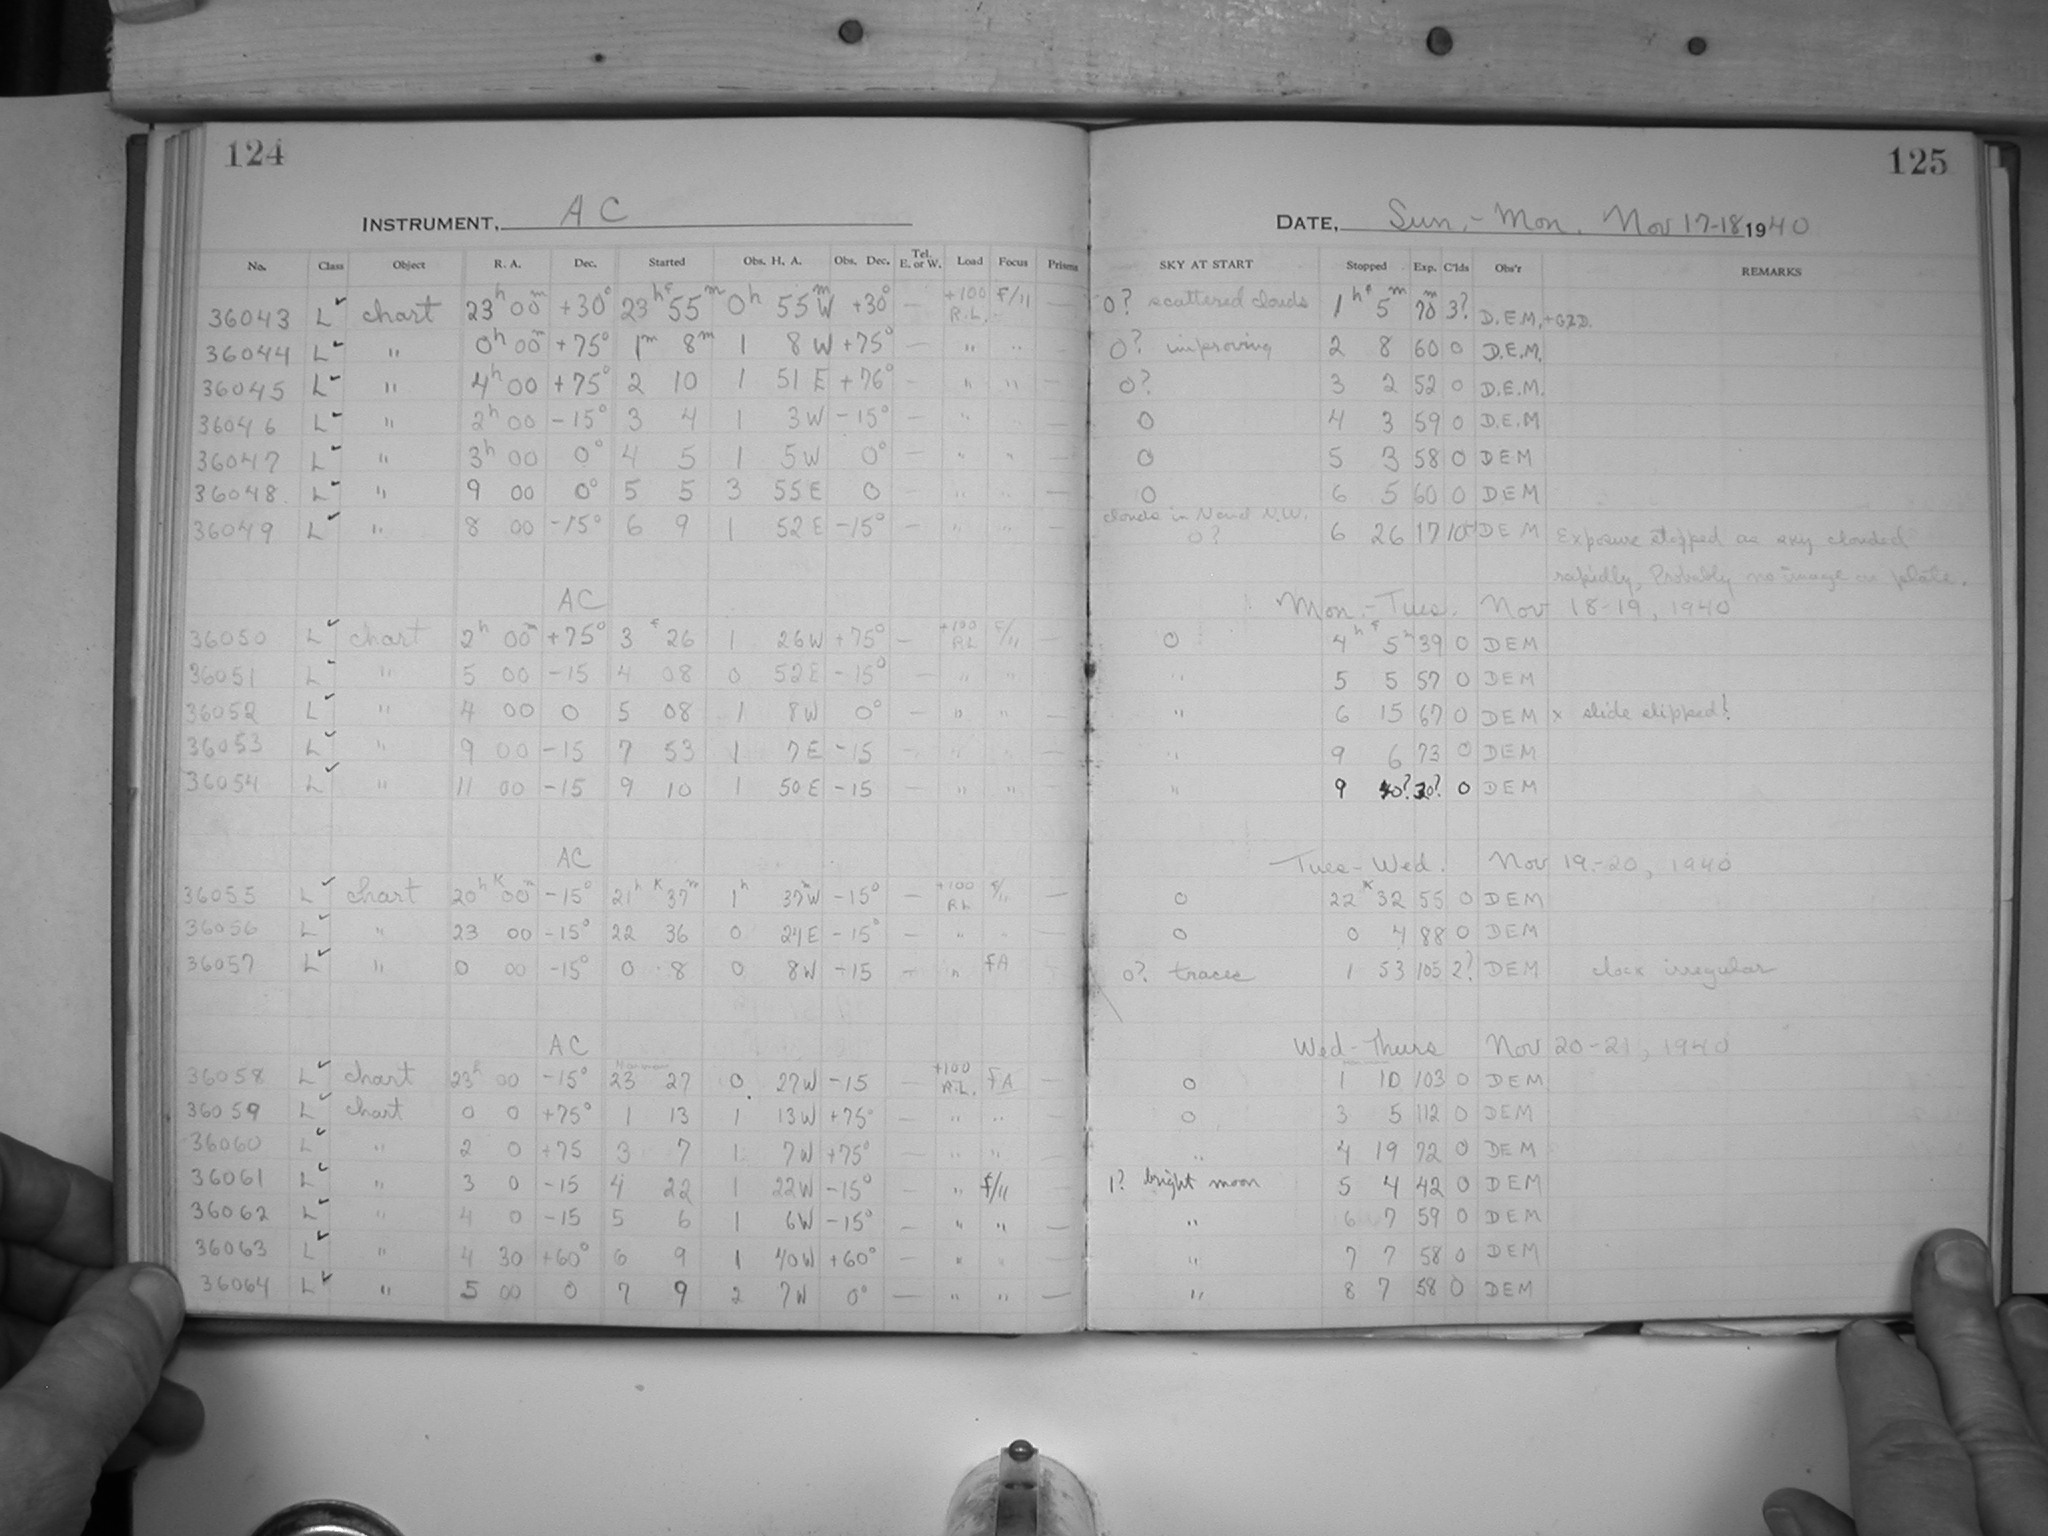 124
125
INSTRUMENT, A C
DATE, Sun.-Mon. Nov 17-18 1940
No. Class Object R. A. Dec. Started Obs. H. A. Obs. Dec. Tel. E. or W. Load Focus Prisms SKY AT START Stopped Exp. C'lds Obs'r REMARKS
36043 L chart 23h 00m +30° 23h 55m 0h 55m W +30° — +100 R.L. F/11 — 0? scattered clouds 1h 5m 70m 3? D.E.M.
36044 L " 0h 00m +75° 1m 8m 1 8 W +75° — " " — 0? improving 2 8 60 0 D.E.M.
36045 L " 4h 00 +75° 2 10 1 51 E +76° — " " — 0? 3 2 52 0 D.E.M.
36046 L " 2h 00 -15° 3 4 1 3 W -15° — " — 0 4 3 59 0 D.E.M
36047 L " 3h 00 0° 4 5 1 5 W 0° — " " — 0 5 3 58 0 DEM
36048 L " 9 00 0° 5 5 3 55 E 0 — " " — 0 6 5 60 0 DEM
36049 L " 8 00 -15° 6 9 1 52 E -15° — " " — clouds in N and N.W. 0? 6 26 17 10 DEM Exposure stopped as sky clouded
rapidly, Probably no image on plate.
AC Mon.-Tues. Nov 18-19, 1940
36050 L chart 2h 00m +75° 3 26 1 26 W +75° — +100 RL F/11 — 0 4h 5m 39 0 DEM
36051 L " 5 00 -15 4 08 0 52 E -15° — " " — " 5 5 57 0 DEM
36052 L " 4 00 0 5 08 1 8 W 0° — " " — " 6 15 67 0 DEM x slide slipped!
36053 L " 9 00 -15 7 53 1 7 E -15 — " " — " 9 6 73 0 DEM
36054 L " 11 00 -15 9 10 1 50 E -15 — " " — " 9 40? 30? 0 DEM
AC Tues-Wed. Nov 19-20, 1940
36055 L chart 20h 00m -15° 21h 37m 1h 37m W -15° — +100 RL F/11 — 0 22 32 55 0 DEM
36056 L " 23 00 -15° 22 36 0 24 E -15° — " " — 0 0 4 88 0 DEM
36057 L " 0 00 -15° 0 8 0 8 W -15 — " FA 0? traces 1 53 105 2? DEM clock irregular
AC Wed-Thurs Nov 20-21, 1940
36058 L chart 23h 00 -15° 23 27 0 27 W -15 — +100 R.L. FA — 0 1 10 103 0 DEM
36059 L chart 0 0 +75° 1 13 1 13 W +75° — " " — 0 3 5 112 0 DEM
36060 L " 2 0 +75 3 7 1 7 W +75° — " " — " 4 19 72 0 DEM
36061 L " 3 0 -15 4 22 1 22 W -15° — " F/11 — 1? bright moon 5 4 42 0 DEM
36062 L " 4 0 -15 5 6 1 6 W -15° — " " — " 6 7 59 0 DEM
36063 L " 4 30 +60° 6 9 1 40 W +60° — " " — " 7 7 58 0 DEM
36064 L " 5 00 0 7 9 2 7 W 0° — " " — " 8 7 58 0 DEM